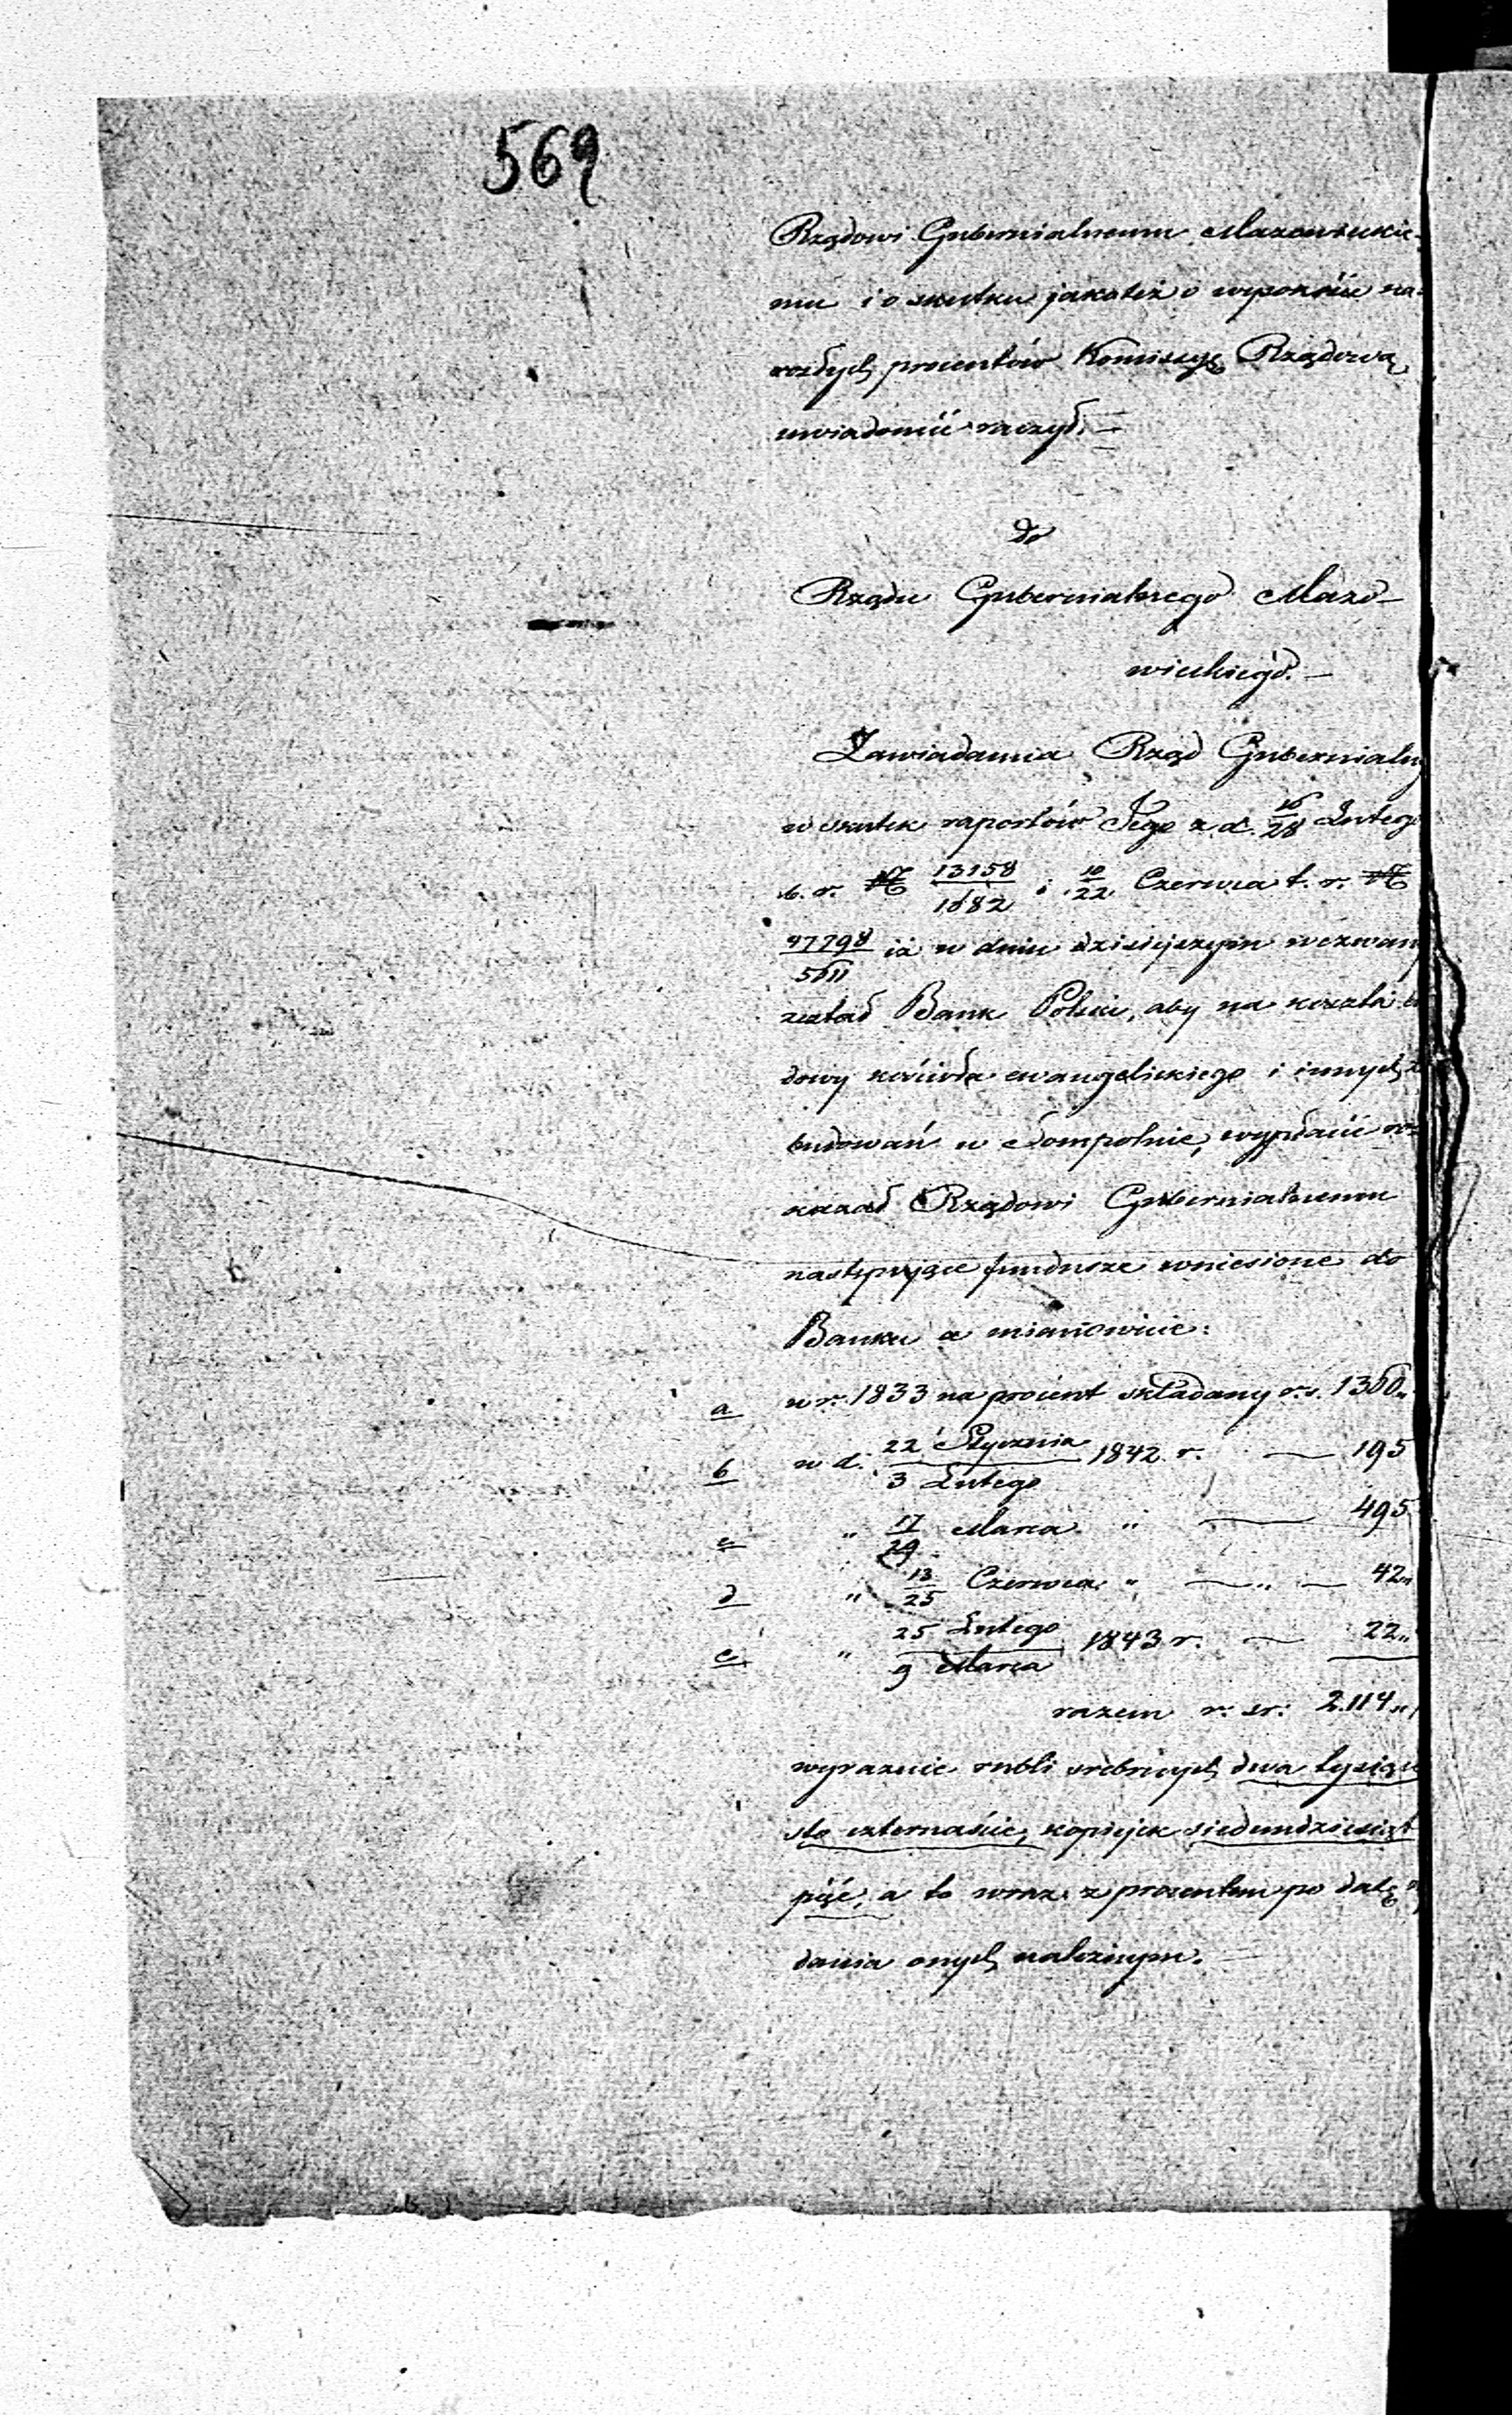 569
Rządowi Gubernialnemu Mazowieckie-
mu i o skutku jakoteż o wysokości na-
rosłych procentów Kommissyę Rządową
uwiadomić raczył. —
do
Rządu Gubernialnego Mazo-
wieckiego. —
Zawiadamia Rząd Gubernialny
w skutek raportów Jego z d. 16/28 Lutego
b. r. № 13158/1682 i 10/22 Czerwca t. r. №
47798/5611 iż w dniu dzisiejszym wezwany
został Bank Polski, aby na koszta bu
dowy kościoła ewangelickiego i innych
budowań w Sompolnie, wypłacić roz
kazał Rządowi Gubernialnemu
następujące fundusze wniesione do
Banku a mianowicie:
a w r. 1833 na procent składany r. s. 1360 „
b w d. 22 Stycznia/3 Lutego 1842 r. — 195
c „ 17/29 Marca „ — 495
d „ 13/25 Czerwca „ — „ — 42 „
e „ 25 Lutego/9 Marca 1843 r. — 22 „
razem r. sr. 2.114 „
wyraznie rubli srebrnych dwa tysiące
sto czternaście, kopiejek siedmdziesiąt
pięć, a to wraz z procentem po datę
dania onych należnym. —